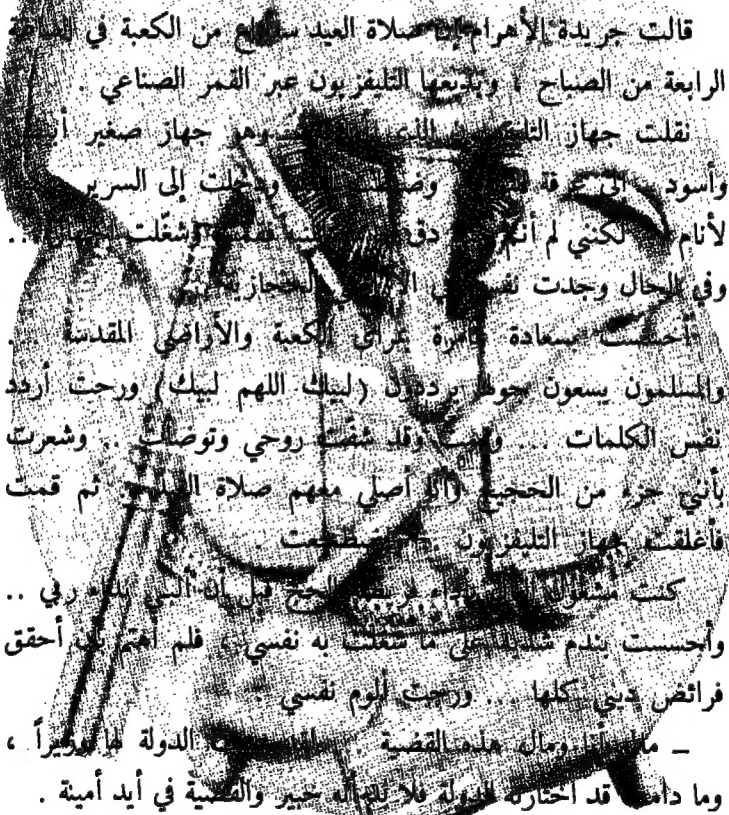 قالت جريدة الأهرام إن صلاة العيد من الكعبة في
الرابعة من الصباح ، ويذيعها التليفزيون عبر القمر الصناعي .
نقلت جهاز وهو جهاز صغير
وأسود إلى غرفة إلى السرير
لأنام لكنني لم أنم وشغلت ..
وفي الحال وجدت
أحسست بسعادة غامرة الكعبة والأراضي المقدسة ..
والمسلمون يسعون حولها يرددون (لبيك اللهم لبيك) ورحت أردد
نفس الكلمات ... وقد شفت روحي وتوضأت .. وشعرت
بأنني جزء من الحجيج وأنا أصلي معهم صلاة ثم قمت
فأغلقت جهاز التليفزيون
كنت الحج قبل أن ألبي نداء ربي ..
وأحسست بندم شديد على ما شغلت به نفسي ، فلم أهتم بأن أحقق
فرائض ديني كلها ... ورحت ألوم نفسي :
ـ مالي أنا ومال هذه القضية .. الدولة لها وزيراً ،
وما دامت قد اختارته الدولة فلا بد أنه خبير والقضية في أيد أمينة .